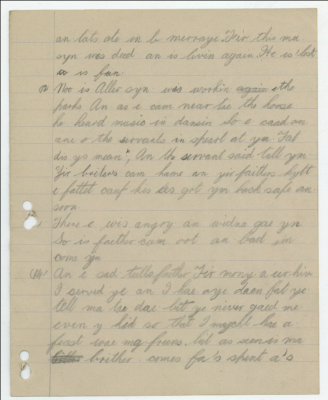 an lats ole in be merraye. Fir this ma
syn was deed an is livin again. He is lost
is fun.
Noo is Aller syn was workin again e the
parks An as e cam near tee the hoose
he heard music in dansin So e caad on
ane o the servants in speart at ym "Fat
dis yt mean". An the servant said tell ym
Yir brither's cam hame an yir faither's kylt
e fattet caaf his ees gote ym back safe an
soon
There e wis angry an widna gae yn
So is faither cam oot an bad im
com yn
An e sed tull e faither, Fir mony a eer hiv
I served ye an I hae aye deen fat ye
tell ma tae dae but ye niver gaed me
even y kid so that I mycht hae a
feast wae my freens. but as seen as ma
brither comes fa's spent a's